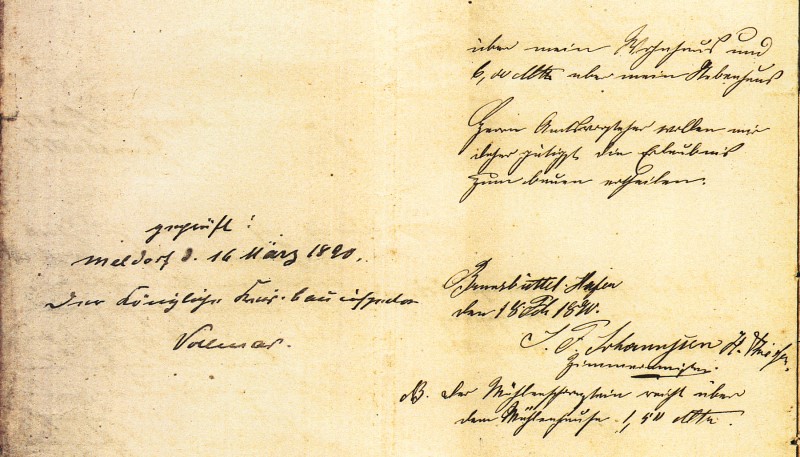 über mein Wohnhaus und
6,00 Mtr. über mein Nebenhaus
Herrn Amtsvorsteher wollen mir
daher gütigst die Erlaubnis
zum bauen ertheilen.
geprüft:
Meldorf d. 16 März 1890.
Der Königliche Kreisbauinspector
Vollmar.
Brunsbüttel Hafen
den 18 Feb 1890.
J. F. Johannsen H.
Zimmermeister.
NB. Der Mühlenschornstein reicht über
dem Mühlenhause 1,50 Mtr.